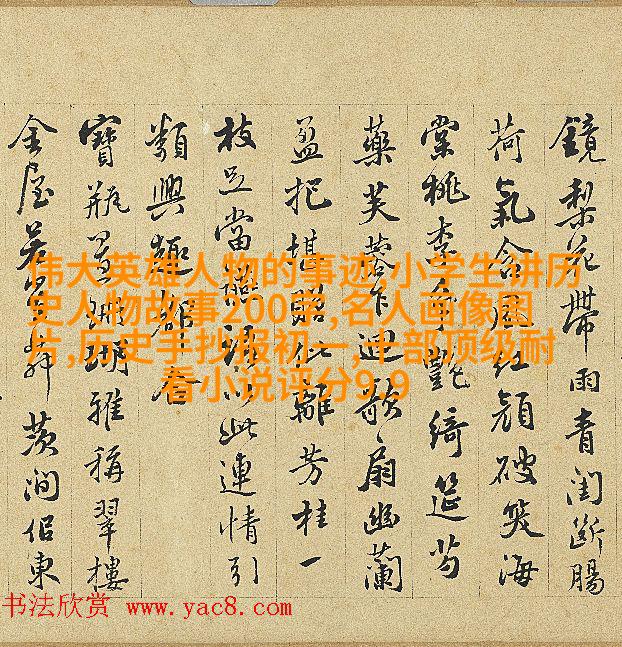 鏡梨花帶雨青閨斷腸
荷氣含風紅顏破笑海
棠桃李爭艷綺筵芍
藥芙蓉乍迎歌扇幽蘭
盈把堪昭此離芳桂一
枝足當燕以此連情引
類興趣都卷
寶瓶置瑚雅稱翠樓
金屋若舞茨澗佀東
伟大英雄人物的事迹,小学生讲历
史人物故事200字,名人画像图
片,历史手抄报初一,十部顶级耐
看小说评分9.9
书法欣赏 www.yac8.com